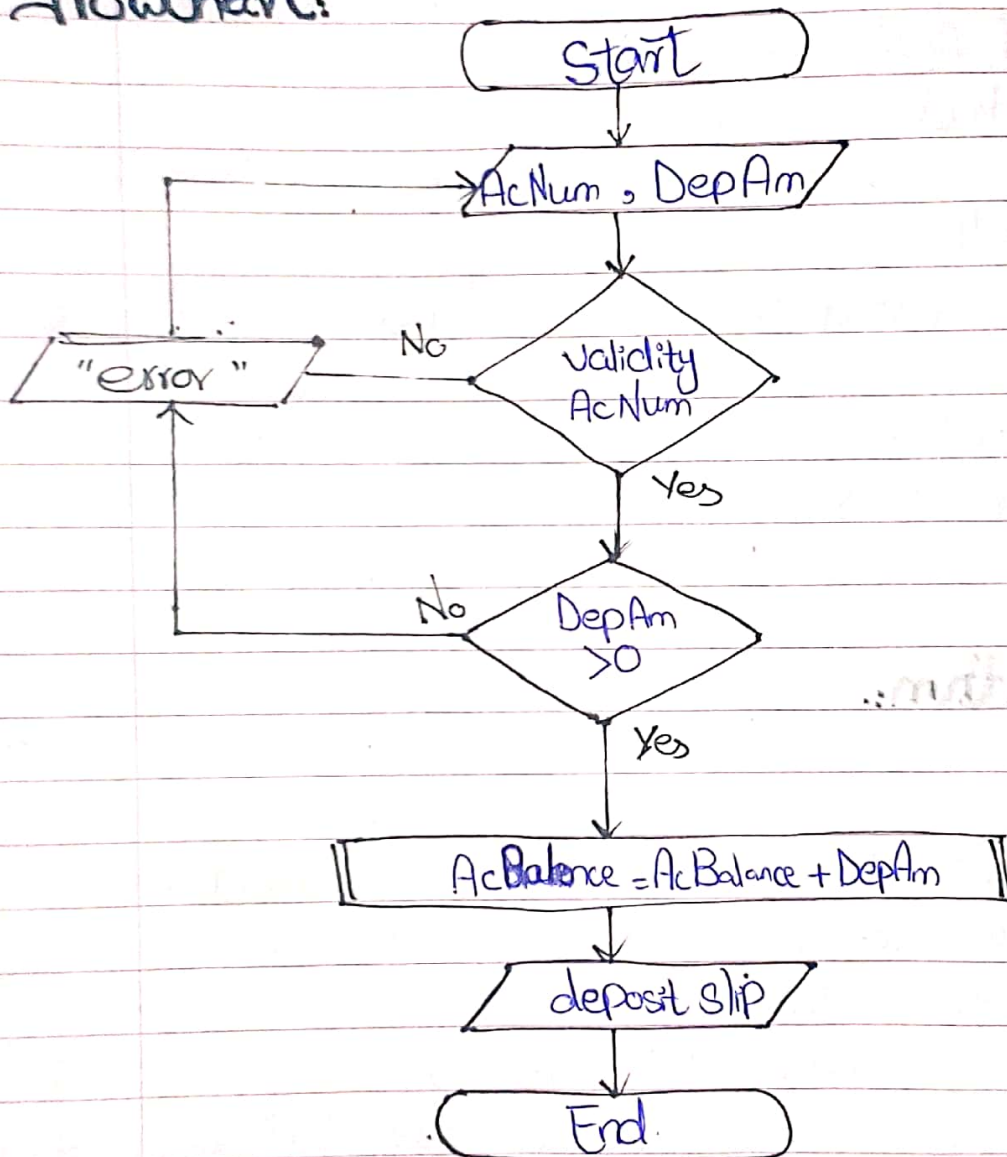 flowchart:
Start
AcNum , DepAm
"error"
No
validity
AcNum
Yes
No
DepAm
>0
Yes
AcBalance = AcBalance + DepAm
deposit slip
End.